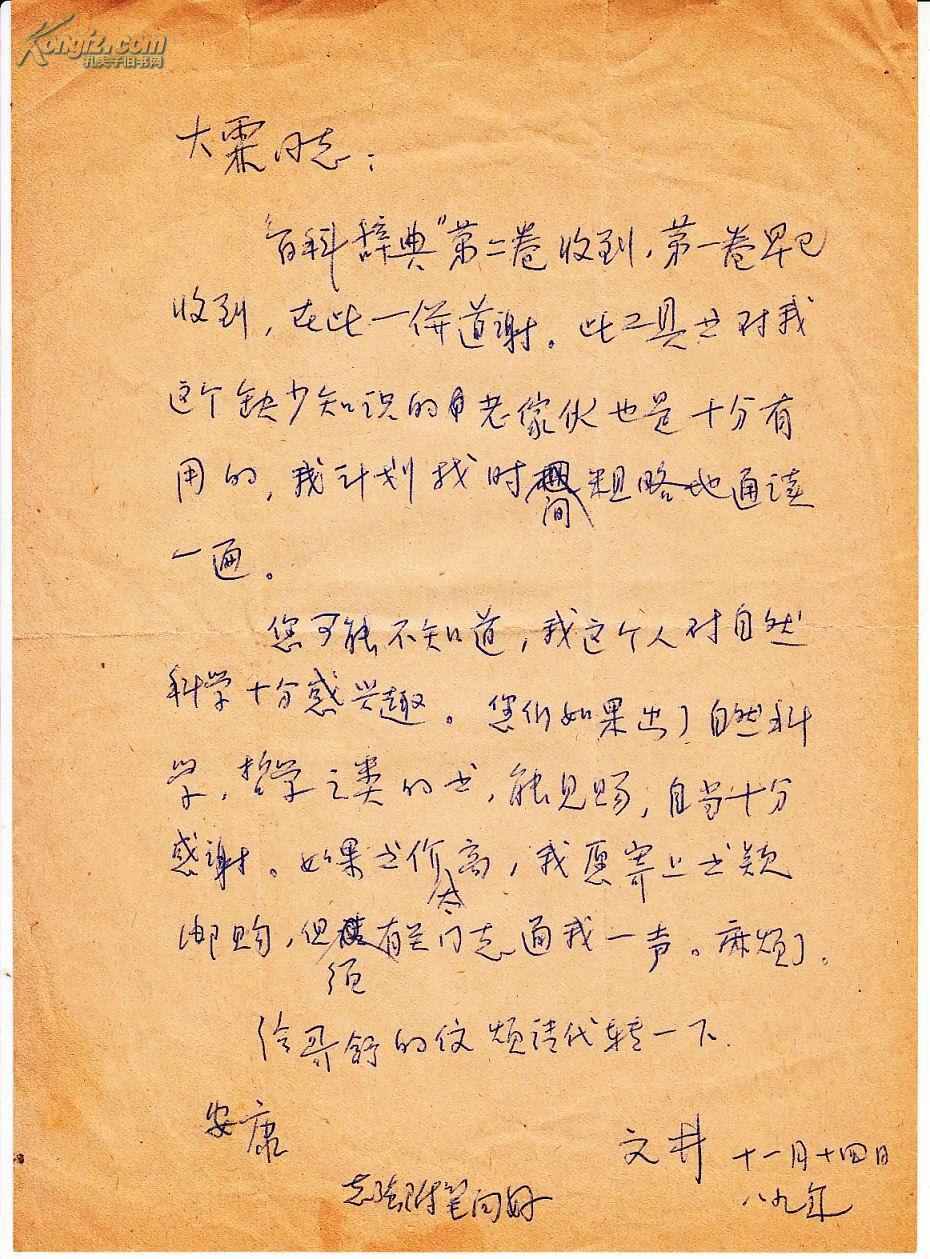 Kongfz.com
孔夫子旧书网
大霖同志:
百科辞典"第二卷收到,第一卷早已
收到,在此一併道谢。此工具书对我
这个缺少知识的老傢伙也是十分有
用的,我计划找时间粗略地通读
一遍。
您可能不知道,我这个人对自然
科学十分感兴趣。您们如果出了自然科
学,哲学之类的书,能见赐,自当十分
感谢。如果书价太高,我愿寄上书款
邮购,但须有关同志通我一声。麻烦了。
给哥舒的信烦请代转一下.
安康
文井 十一月十四日
八九年
志强附笔问好